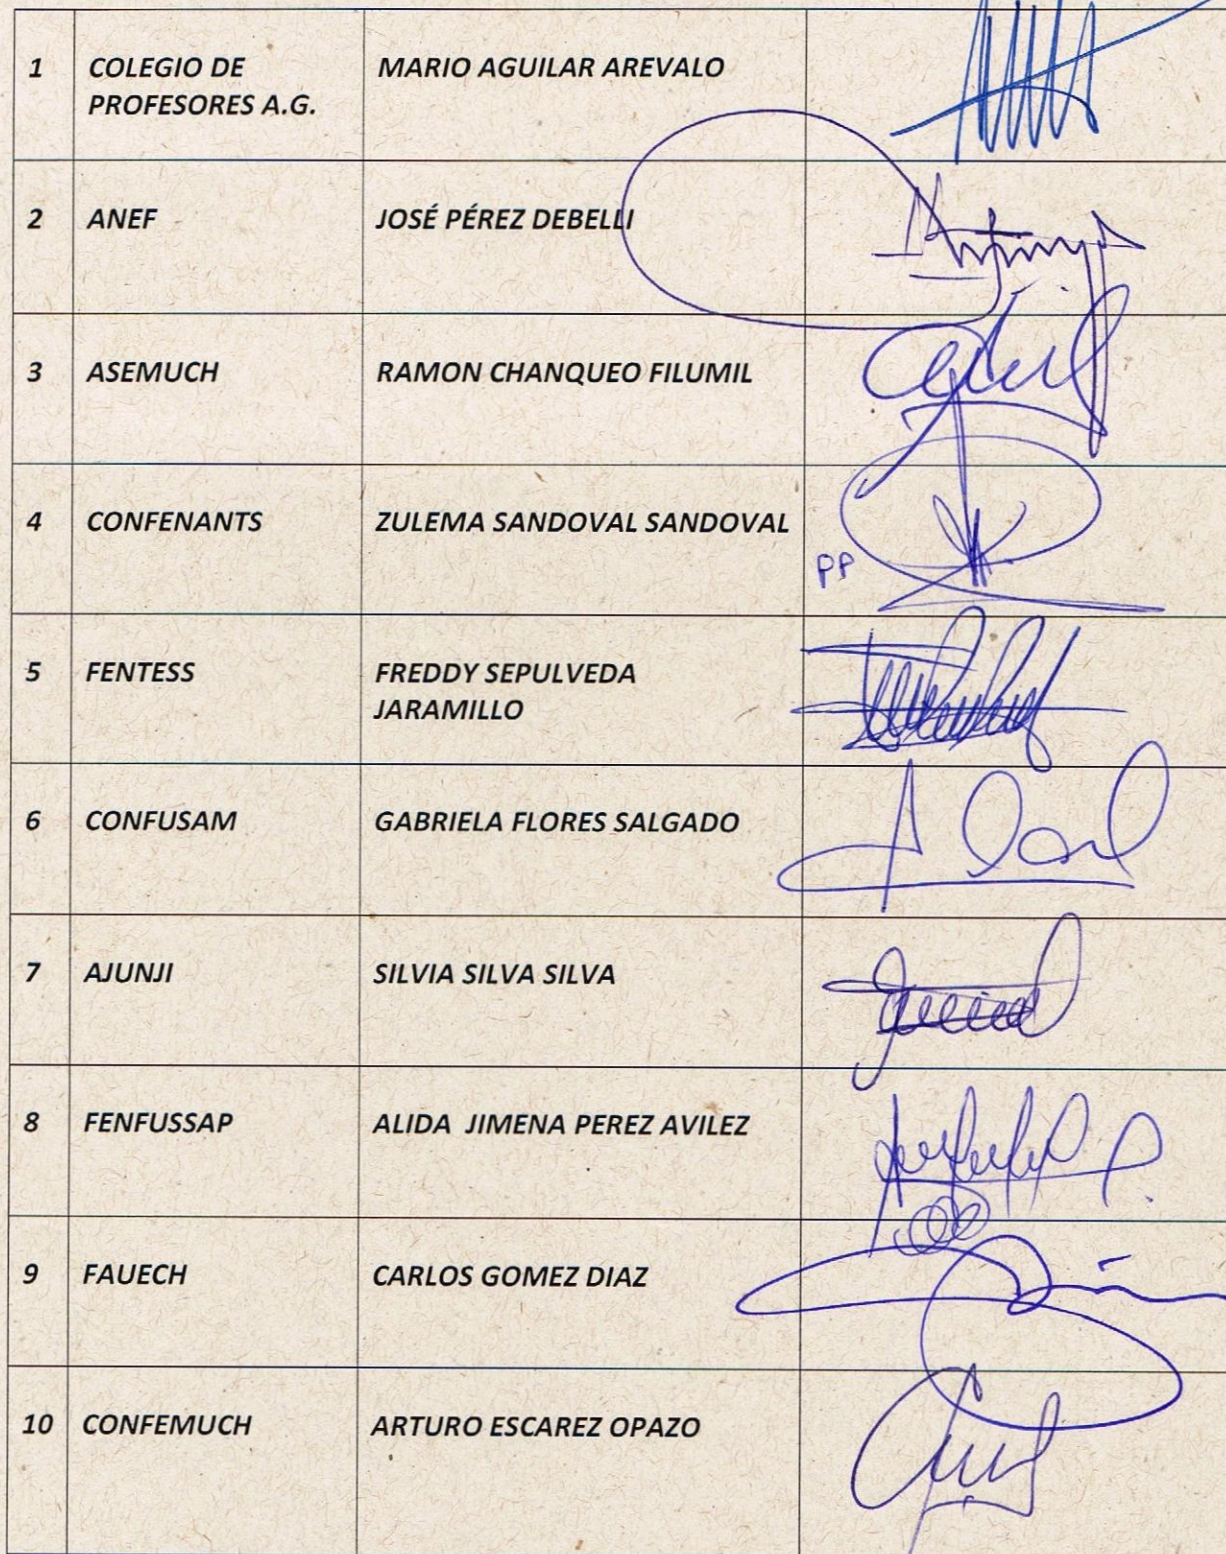 1 COLEGIO DE MARIO AGUILAR AREVALO
PROFESORES A.G.
2 ANEF JOSÉ PÉREZ DEBELLI
3 ASEMUCH RAMON CHANQUEO FILUMIL
4 CONFENANTS ZULEMA SANDOVAL SANDOVAL
PP
5 FENTESS FREDDY SEPULVEDA
JARAMILLO
6 CONFUSAM GABRIELA FLORES SALGADO
7 AJUNJI SILVIA SILVA SILVA
8 FENFUSSAP ALIDA JIMENA PEREZ AVILEZ
9 FAUECH CARLOS GOMEZ DIAZ
10 CONFEMUCH ARTURO ESCAREZ OPAZO